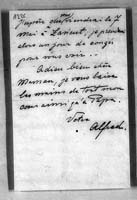 j'espère me rendre le 7
Mai à Lancut, je prendrai
alors un jour de congé
pour vous voir...
Adieu bien chère
Maman, je vous baise
les mains de tout mon
cœur ainsi qu'à Papa.
Votre
Alfred.